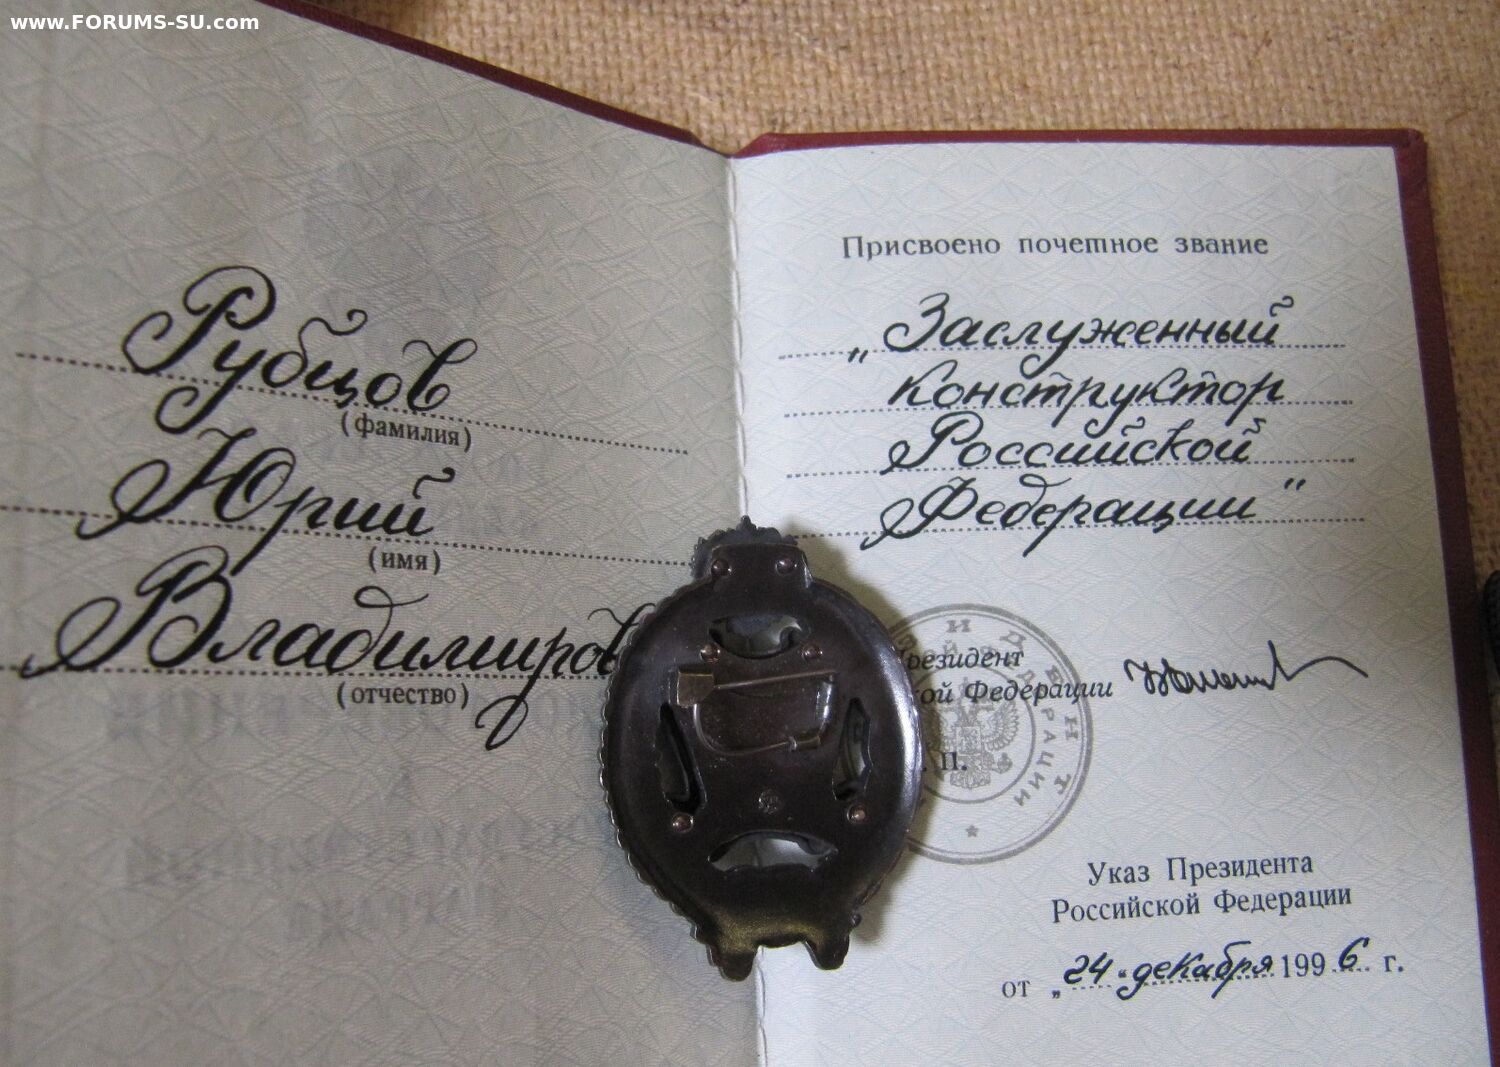 www.FORUMS-SU.com
Рубцов
(фамилия)
Юрий
(имя)
Владимиров
(отчество)
Присвоено почетное звание
„Заслуженный
конструктор
Российской
Федерации"
резидент
ой Федерации
. П.
Указ Президента
Российской Федерации
от „24" декабря 1996 г.